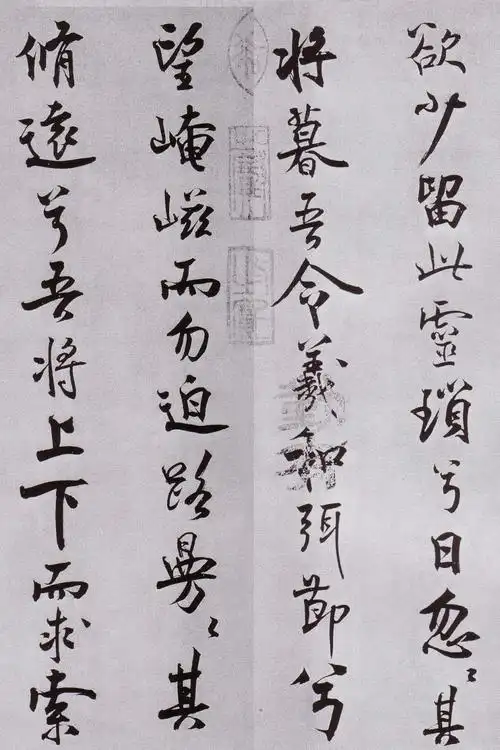 欲少留此靈瑣兮日忽〻其
将暮吾令羲和弭節兮
望崦嵫而勿迫路曼〻其
脩遠兮吾将上下而求索